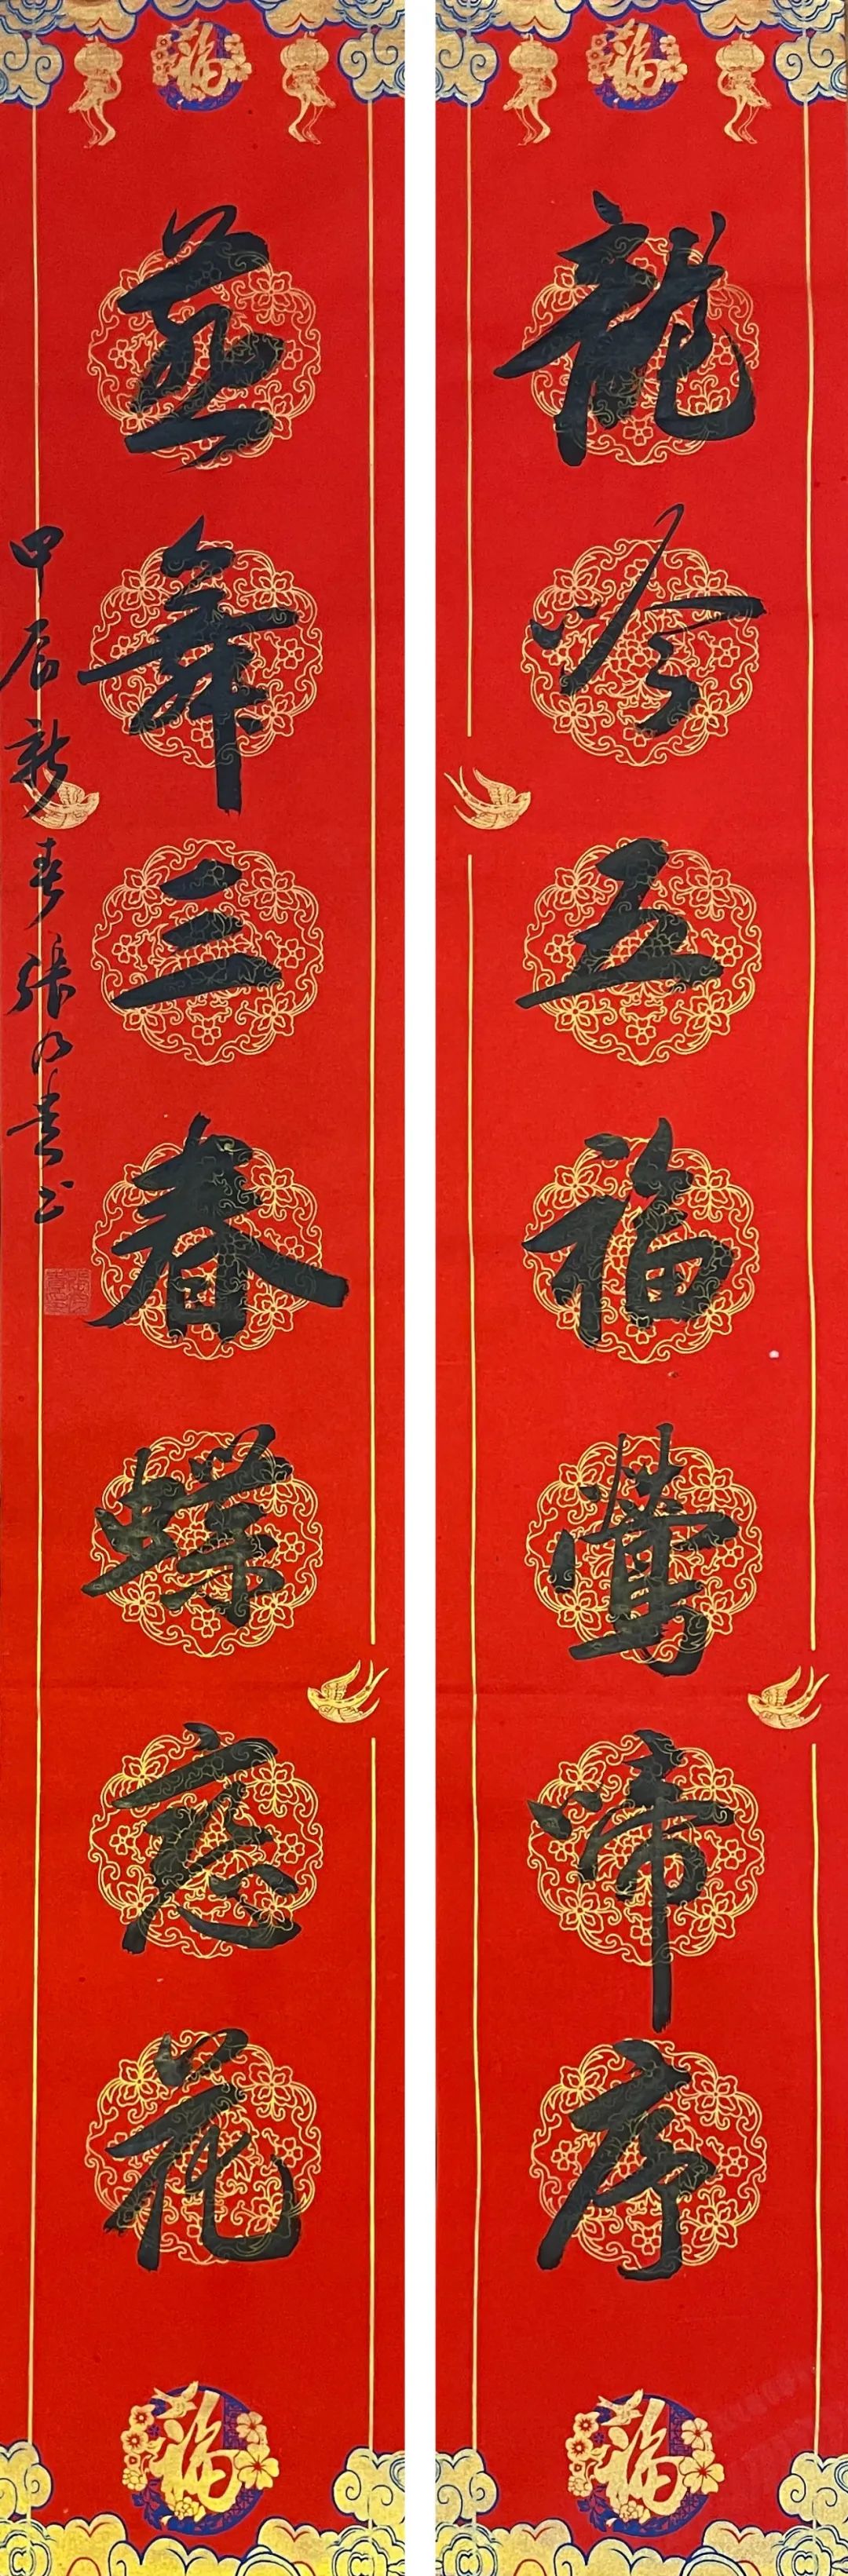 福
龍吟五福鶯啼序
福
福
燕舞三春蝶恋花
福
甲辰新春張乃贵书